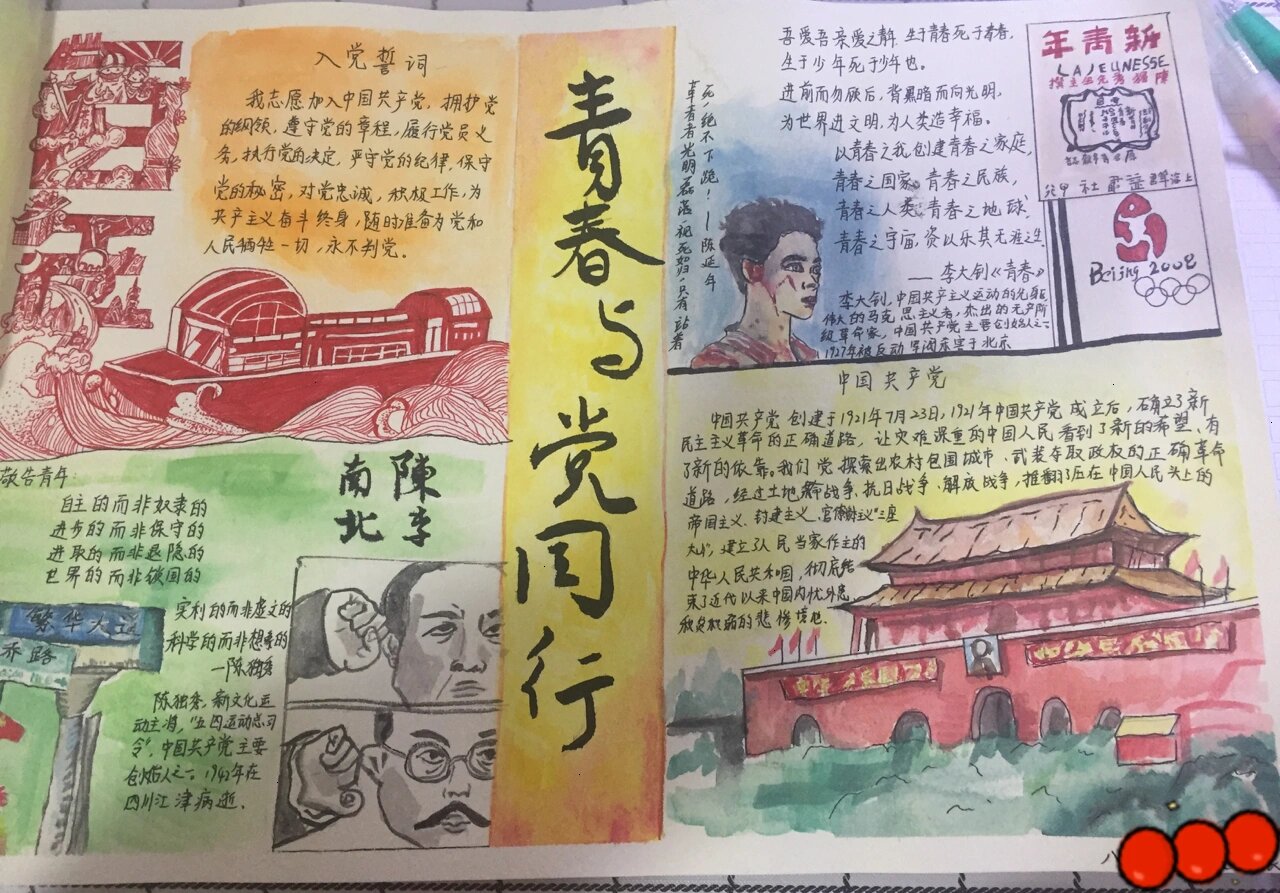 入党誓词
我志愿加入中国共产党，拥护党
的纲领，遵守党的章程，履行党员义
务，执行党的决定，严守党的纪律，保守
党的秘密，对党忠诚，积极工作，为
共产主义奋斗终身，随时准备为党和
人民牺牲一切，永不判党。
敬告青年：
自主的而非奴隶的
进步的而非保守的
进取的而非退隐的
世界的而非锁国的
实利的而非虚文的
科学的而非想象的
—陈独秀
陈独秀，新文化运
动主将，"五四运动总司
令"，中国共产党主要
创始人之一。1942年在
四川江津病逝。
南陳
北李
繁华大道
乔路
青春与党同行
革命者光明磊落视死如归，只有站着
死，绝不下跪！——陈延年
吾爱吾亲爱之青年 生于青春死于青春，
生于少年死于少年也。
进前而勿顾后，背黑暗而向光明，
为世界进文明，为人类造幸福。
以青春之我，创建青春之家庭，
青春之国家，青春之民族，
青春之人类，青春之地球，
青春之宇宙，资以乐其无涯之生
——李大钊《青春》
李大钊，中国共产主义运动的先驱
伟大的马克思主义者，杰出的无产阶
级革命家，中国共产党主要创始人之一
1927年被反动军阀杀害于北京
年青新
LAJEUNESSE
撰主生先秀独陳
Beijing 2008
中国共产党
中国共产党创建于1921年7月23日，1921年中国共产党成立后，确立了新
民主主义革命的正确道路，让灾难深重的中国人民看到了新的希望、有
了新的依靠。我们党探索出农村包围城市、武装夺取政权的正确革命
道路，经过土地革命战争、抗日战争、解放战争，推翻了压在中国人民头上的
帝国主义、封建主义、官僚主义"三座
大山"，建立了人民当家作主的
中华人民共和国，彻底结
束了近代以来中国内忧外患、
积贫积弱的悲惨境地.
八